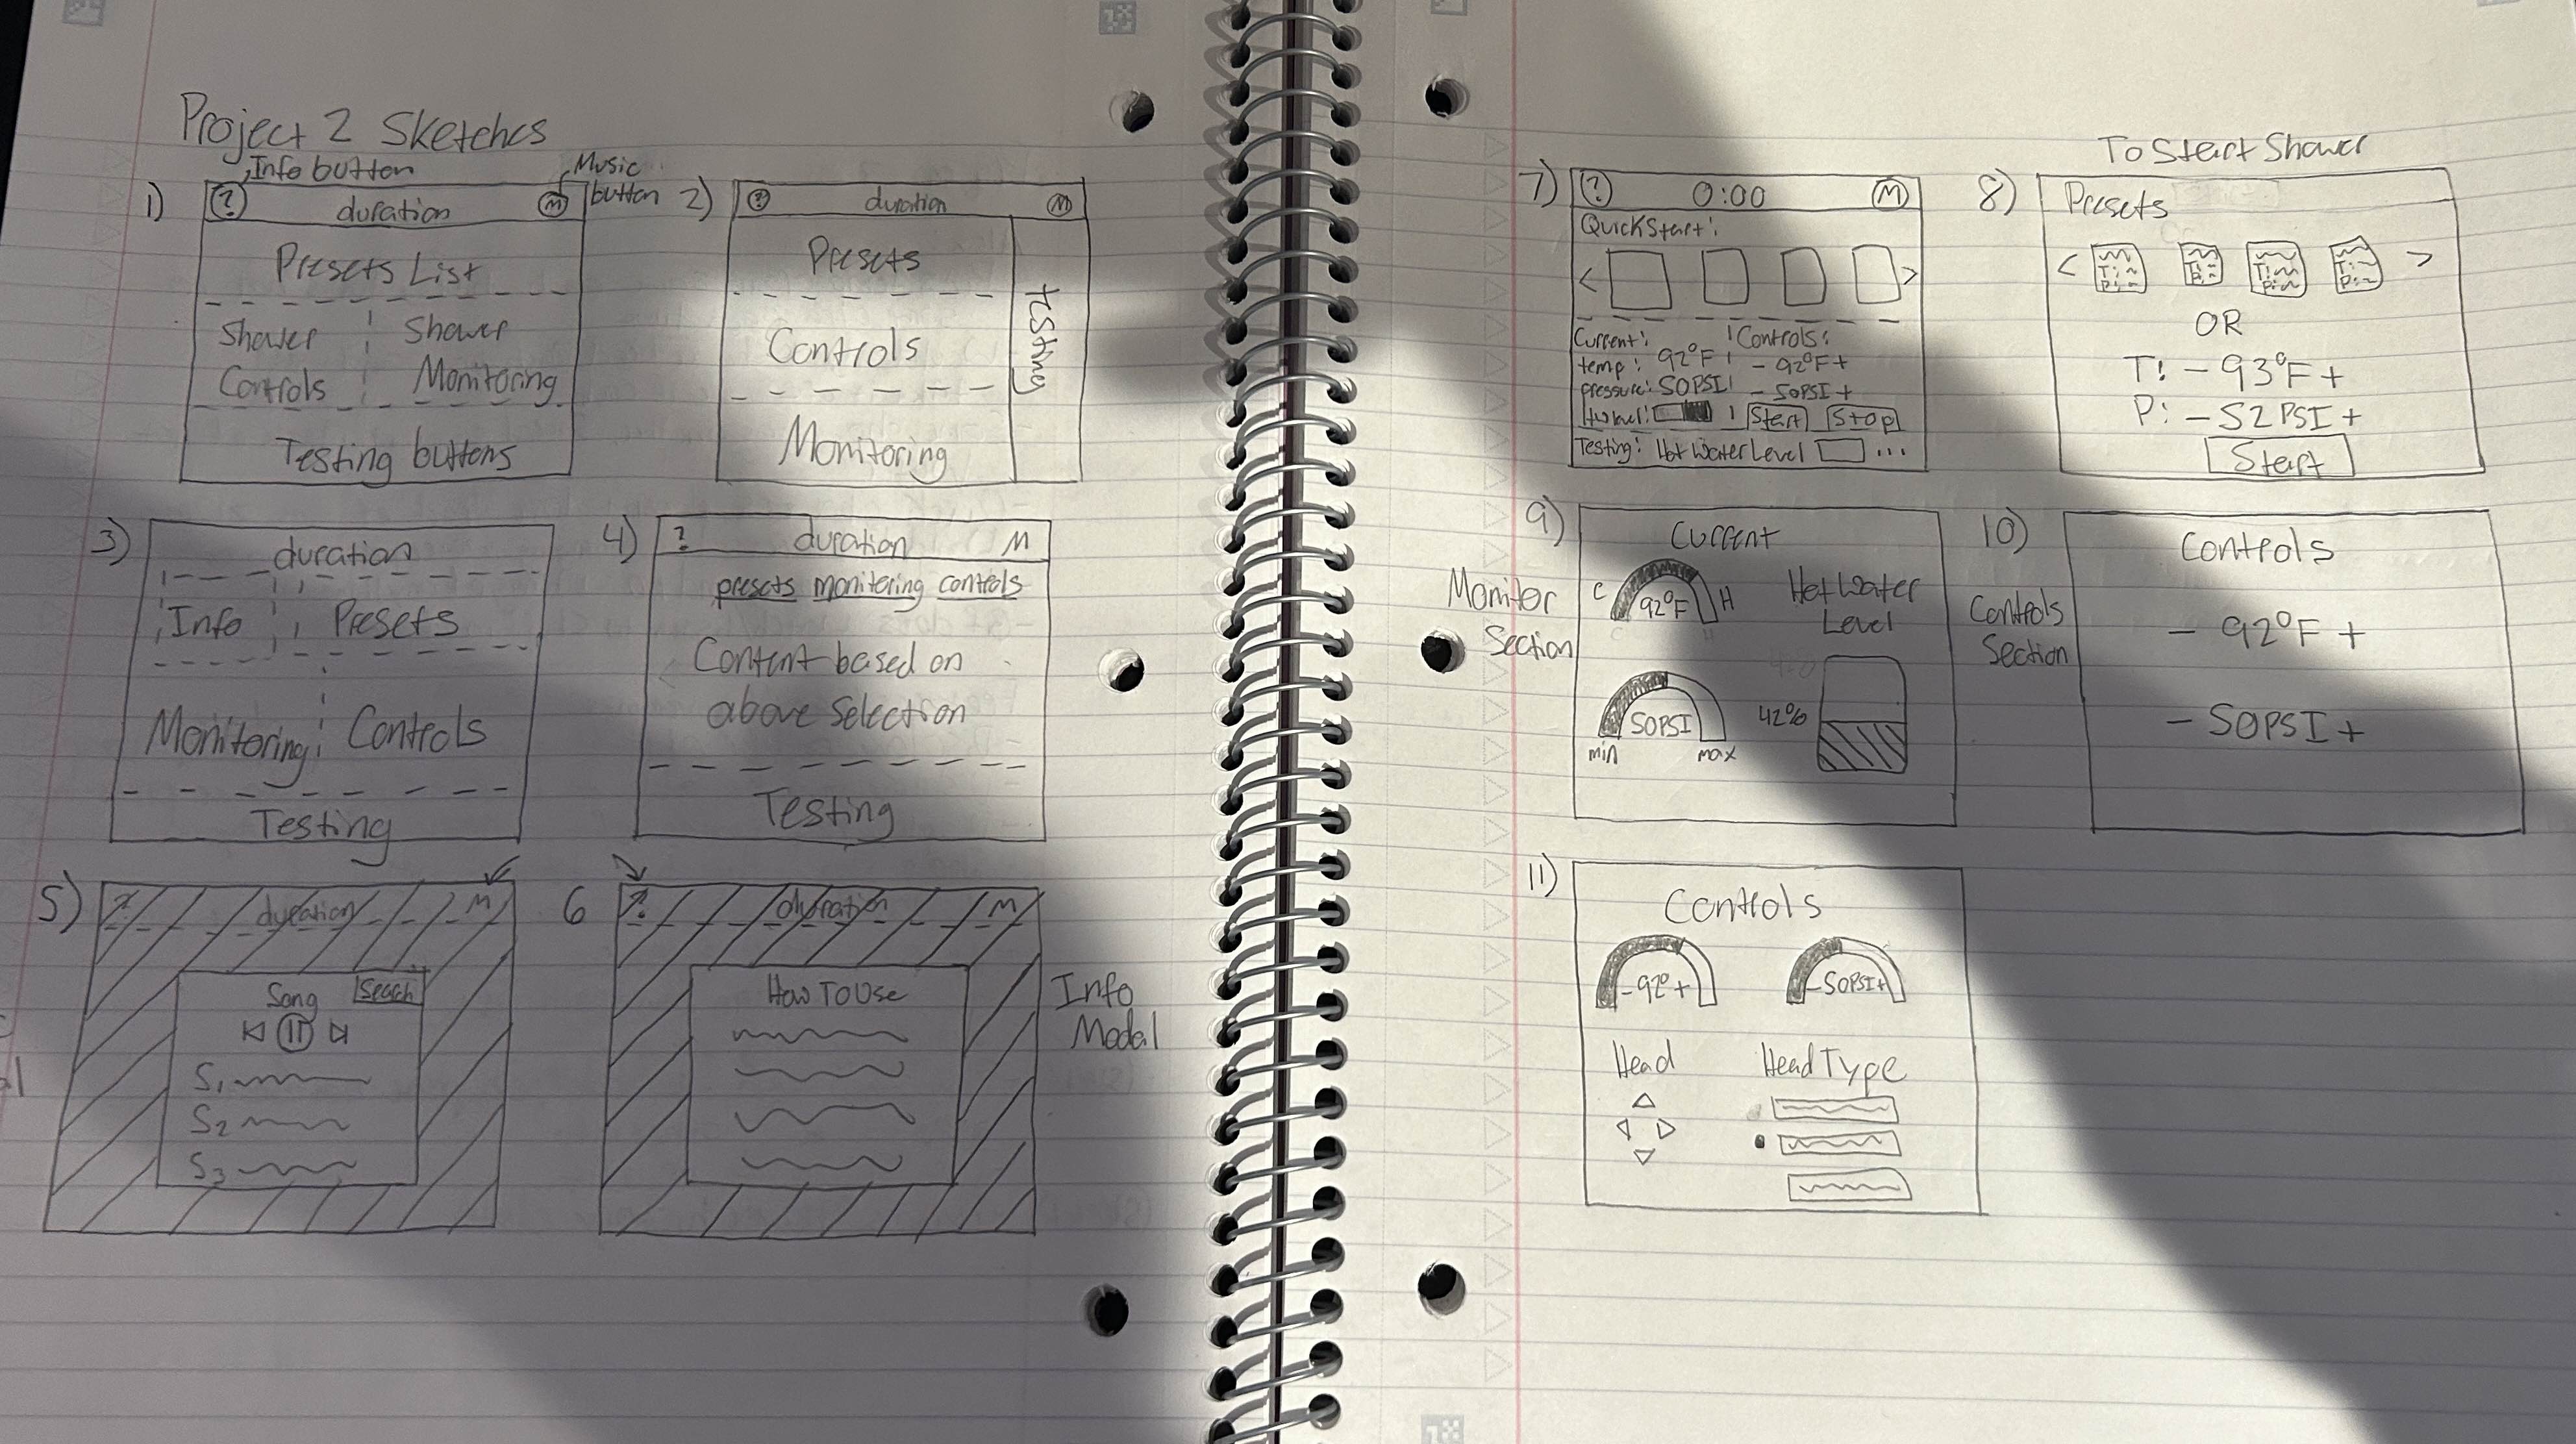 Project 2 Sketches
Info button
Music button
1)
? duration M
Presets List
Shower Controls
Shower Monitoring
Testing buttons
2)
? duration M
Presets
Controls
Monitoring
testing
3)
duration
Info Presets
Monitoring Controls
Testing
4)
? duration M
presets monitoring controls
Content based on
above Selection
Testing
5)
? duration M
Song Seach
S1
S2
S3
6
? duration M
How To Use
Info
Modal
7)
? 0:00 M
Quick Start:
< >
Current: Controls:
temp: 92°F - 92°F +
pressure: 50PSI - 50PSI +
Start Stop
Testing: Hot Water Level ...
To Start Shower
8)
Presets
< >
T: T: T: T:
P: P: P: P:
OR
T: - 93°F +
P: - 52 PSI +
Start
9)
Monitor
Section
Current
C 92°F H
Hot Water
Level
50PSI
min max
42%
10)
Controls
Section
Controls
- 92°F +
- 50PSI +
11)
Controls
- 92° + - 50PSI +
Head Head Type